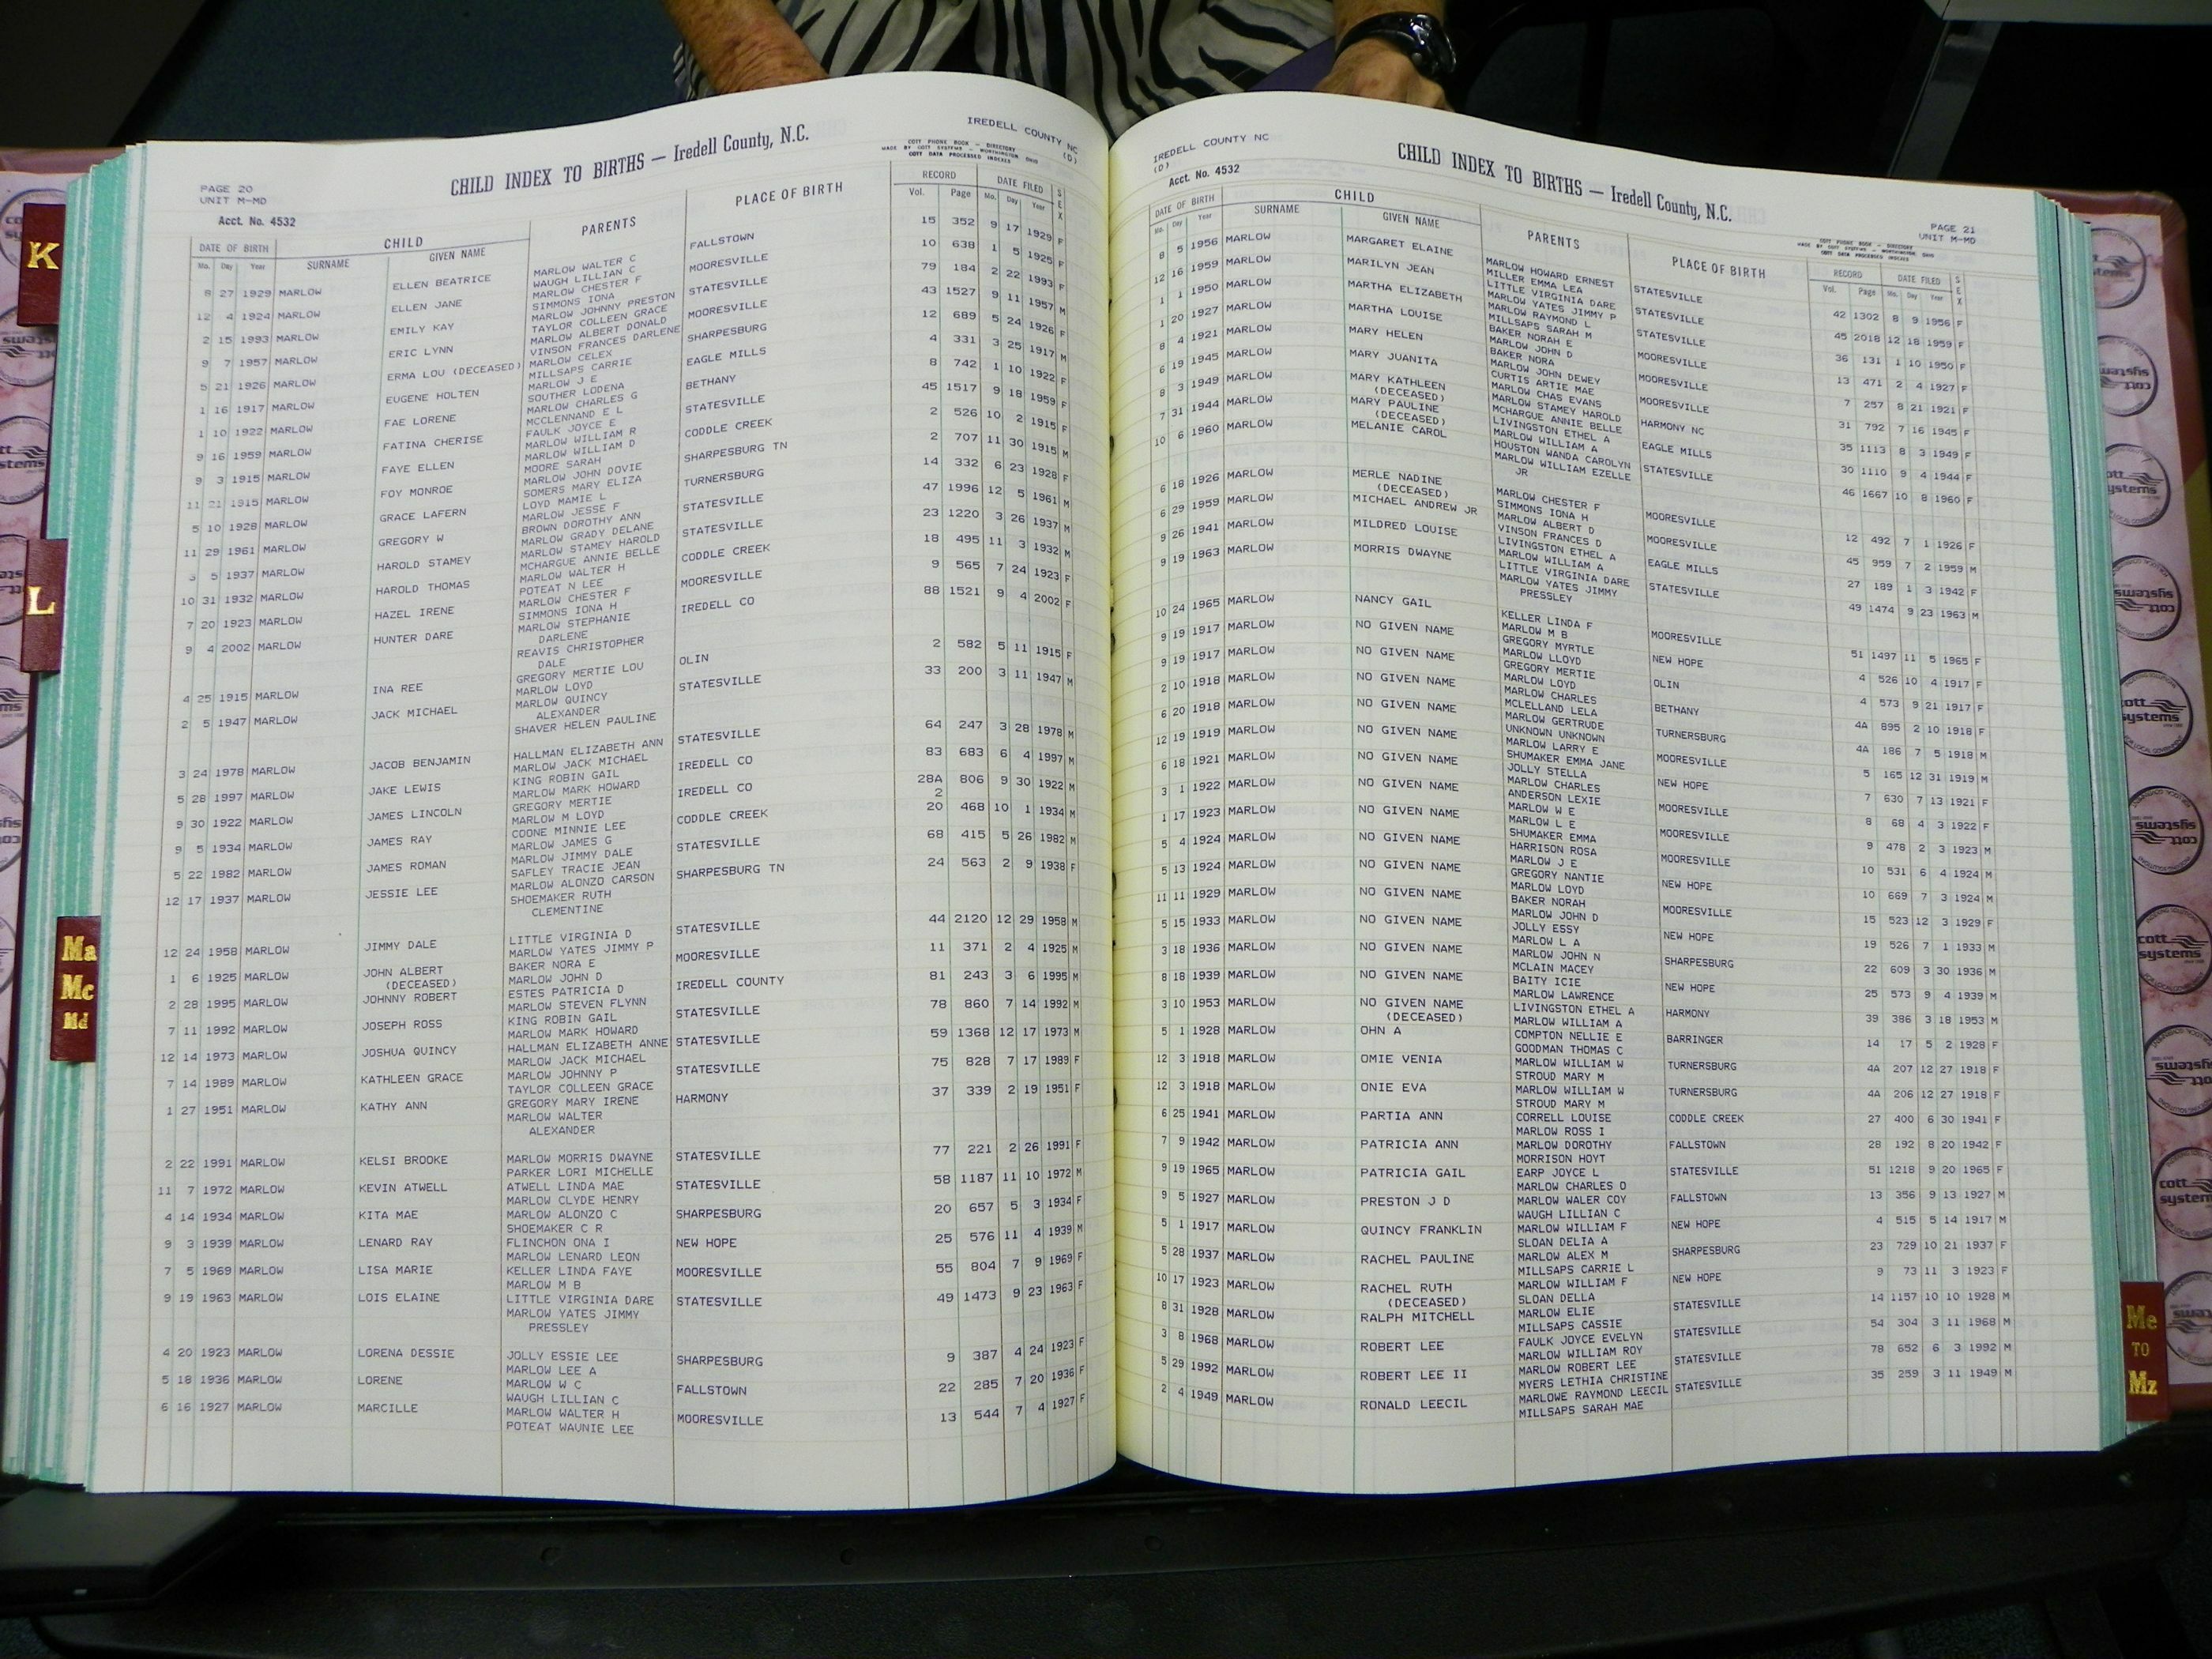 IREDELL COUNTY NC
(D)
PAGE 20
UNIT M-MD
CHILD INDEX TO BIRTHS — Iredell County, N.C.
COTT PHONE BOOK - DIRECTORY
MADE BY COTT SYSTEMS - WORTHINGTON OHIO
COTT DATA PROCESSED INDEXES
Acct. No. 4532
DATE OF BIRTH CHILD PARENTS PLACE OF BIRTH RECORD DATE FILED SEX
Mo. Day Year SURNAME GIVEN NAME Vol. Page Mo. Day Year
8 27 1929 MARLOW ELLEN BEATRICE MARLOW WALTER C FALLSTOWN 15 352 9 17 1929 F
WAUGH LILLIAN C
12 4 1924 MARLOW ELLEN JANE MARLOW CHESTER F MOORESVILLE 10 638 1 5 1925 F
SIMMONS IONA
2 15 1993 MARLOW EMILY KAY MARLOW JOHNNY PRESTON STATESVILLE 79 184 2 22 1993 F
TAYLOR COLLEEN GRACE
9 7 1957 MARLOW ERIC LYNN MARLOW ALBERT DONALD MOORESVILLE 43 1527 9 11 1957 M
VINSON FRANCES DARLENE
5 21 1926 MARLOW ERMA LOU (DECEASED) MARLOW CELEX SHARPESBURG 12 689 5 24 1926 F
MILLSAPS CARRIE
1 16 1917 MARLOW EUGENE HOLTEN MARLOW J E EAGLE MILLS 4 331 3 25 1917 M
SOUTHER LODENA
1 10 1922 MARLOW FAE LORENE MARLOW CHARLES G BETHANY 8 742 1 10 1922 F
MCCLENNAND E L
9 16 1959 MARLOW FATINA CHERISE FAULK JOYCE E STATESVILLE 45 1517 9 18 1959 F
MARLOW WILLIAM R
9 3 1915 MARLOW FAYE ELLEN MARLOW WILLIAM D CODDLE CREEK 2 526 10 2 1915 F
MOORE SARAH
11 21 1915 MARLOW FOY MONROE MARLOW JOHN DOVIE SHARPESBURG TN 2 707 11 30 1915 M
SOMERS MARY ELIZA
5 10 1928 MARLOW GRACE LAFERN LOYD MAMIE L TURNERSBURG 14 332 6 23 1928 F
MARLOW JESSE F
11 29 1961 MARLOW GREGORY W BROWN DOROTHY ANN STATESVILLE 47 1996 12 5 1961 M
MARLOW GRADY DELANE
3 5 1937 MARLOW HAROLD STAMEY MARLOW STAMEY HAROLD STATESVILLE 23 1220 3 26 1937 M
MCHARGUE ANNIE BELLE
10 31 1932 MARLOW HAROLD THOMAS MARLOW WALTER H CODDLE CREEK 18 495 11 3 1932 M
POTEAT N LEE
7 20 1923 MARLOW HAZEL IRENE MARLOW CHESTER F MOORESVILLE 9 565 7 24 1923 F
SIMMONS IONA H
9 4 2002 MARLOW HUNTER DARE MARLOW STEPHANIE IREDELL CO 88 1521 9 4 2002 F
DARLENE
REAVIS CHRISTOPHER
DALE
4 25 1915 MARLOW INA REE GREGORY MERTIE LOU OLIN 2 582 5 11 1915 F
MARLOW LOYD
2 5 1947 MARLOW JACK MICHAEL MARLOW QUINCY STATESVILLE 33 200 3 11 1947 M
ALEXANDER
SHAVER HELEN PAULINE
3 24 1978 MARLOW JACOB BENJAMIN HALLMAN ELIZABETH ANN STATESVILLE 64 247 3 28 1978 M
MARLOW JACK MICHAEL
5 28 1997 MARLOW JAKE LEWIS KING ROBIN GAIL IREDELL CO 83 683 6 4 1997 M
MARLOW MARK HOWARD
9 30 1922 MARLOW JAMES LINCOLN GREGORY MERTIE IREDELL CO 28A 806 9 30 1922 M
MARLOW M LOYD 2
9 5 1934 MARLOW JAMES RAY COONE MINNIE LEE CODDLE CREEK 20 468 10 1 1934 M
MARLOW JAMES G
5 22 1982 MARLOW JAMES ROMAN MARLOW JIMMY DALE STATESVILLE 68 415 5 26 1982 M
SAFLEY TRACIE JEAN
12 17 1937 MARLOW JESSIE LEE MARLOW ALONZO CARSON SHARPESBURG TN 24 563 2 9 1938 F
SHOEMAKER RUTH
CLEMENTINE
12 24 1958 MARLOW JIMMY DALE LITTLE VIRGINIA D STATESVILLE 44 2120 12 29 1958 M
MARLOW YATES JIMMY P
1 6 1925 MARLOW JOHN ALBERT BAKER NORA E MOORESVILLE 11 371 2 4 1925 M
(DECEASED) MARLOW JOHN D
2 28 1995 MARLOW JOHNNY ROBERT ESTES PATRICIA D IREDELL COUNTY 81 243 3 6 1995 M
MARLOW STEVEN FLYNN
7 11 1992 MARLOW JOSEPH ROSS KING ROBIN GAIL STATESVILLE 78 860 7 14 1992 M
MARLOW MARK HOWARD
12 14 1973 MARLOW JOSHUA QUINCY HALLMAN ELIZABETH ANNE STATESVILLE 59 1368 12 17 1973 M
MARLOW JACK MICHAEL
7 14 1989 MARLOW KATHLEEN GRACE MARLOW JOHNNY P STATESVILLE 75 828 7 17 1989 F
TAYLOR COLLEEN GRACE
1 27 1951 MARLOW KATHY ANN GREGORY MARY IRENE HARMONY 37 339 2 19 1951 F
MARLOW WALTER
ALEXANDER
2 22 1991 MARLOW KELSI BROOKE MARLOW MORRIS DWAYNE STATESVILLE 77 221 2 26 1991 F
PARKER LORI MICHELLE
11 7 1972 MARLOW KEVIN ATWELL ATWELL LINDA MAE STATESVILLE 58 1187 11 10 1972 M
MARLOW CLYDE HENRY
4 14 1934 MARLOW KITA MAE MARLOW ALONZO C SHARPESBURG 20 657 5 3 1934 F
SHOEMAKER C R
9 3 1939 MARLOW LENARD RAY FLINCHON ONA I NEW HOPE 25 576 11 4 1939 M
MARLOW LENARD LEON
7 5 1969 MARLOW LISA MARIE KELLER LINDA FAYE MOORESVILLE 55 804 7 9 1969 F
MARLOW M B
9 19 1963 MARLOW LOIS ELAINE LITTLE VIRGINIA DARE STATESVILLE 49 1473 9 23 1963 F
MARLOW YATES JIMMY
PRESSLEY
4 20 1923 MARLOW LORENA DESSIE JOLLY ESSIE LEE SHARPESBURG 9 387 4 24 1923 F
MARLOW LEE A
5 18 1936 MARLOW LORENE MARLOW W C FALLSTOWN 22 285 7 20 1936 F
WAUGH LILLIAN C
6 16 1927 MARLOW MARCILLE MARLOW WALTER H MOORESVILLE 13 544 7 4 1927 F
POTEAT WAUNIE LEE
IREDELL COUNTY NC
(D)
Acct. No. 4532
CHILD INDEX TO BIRTHS — Iredell County, N.C.
PAGE 21
UNIT M-MD
COTT PHONE BOOK - DIRECTORY
MADE BY COTT SYSTEMS - WORTHINGTON OHIO
COTT DATA PROCESSED INDEXES
DATE OF BIRTH CHILD PARENTS PLACE OF BIRTH RECORD DATE FILED SEX
Mo. Day Year SURNAME GIVEN NAME Vol. Page Mo. Day Year
8 5 1956 MARLOW MARGARET ELAINE MARLOW HOWARD ERNEST STATESVILLE 42 1302 8 9 1956 F
MILLER EMMA LEA
12 16 1959 MARLOW MARILYN JEAN LITTLE VIRGINIA DARE STATESVILLE 45 2018 12 18 1959 F
MARLOW YATES JIMMY P
1 1 1950 MARLOW MARTHA ELIZABETH MARLOW RAYMOND L STATESVILLE 36 131 1 10 1950 F
MILLSAPS SARAH M
1 20 1927 MARLOW MARTHA LOUISE BAKER NORAH E MOORESVILLE 13 471 2 4 1927 F
MARLOW JOHN D
8 4 1921 MARLOW MARY HELEN BAKER NORA MOORESVILLE 7 257 8 21 1921 F
MARLOW JOHN DEWEY
6 19 1945 MARLOW MARY JUANITA CURTIS ARTIE MAE MOORESVILLE 31 792 7 16 1945 F
MARLOW CHAS EVANS
8 3 1949 MARLOW MARY KATHLEEN MARLOW STAMEY HAROLD HARMONY NC 35 1113 8 3 1949 F
(DECEASED) MCHARGUE ANNIE BELLE
7 31 1944 MARLOW MARY PAULINE LIVINGSTON ETHEL A EAGLE MILLS 30 1110 9 4 1944 F
(DECEASED) MARLOW WILLIAM A
10 6 1960 MARLOW MELANIE CAROL HOUSTON WANDA CAROLYN STATESVILLE 46 1667 10 8 1960 F
MARLOW WILLIAM EZELLE
JR
6 18 1926 MARLOW MERLE NADINE MARLOW CHESTER F MOORESVILLE 12 492 7 1 1926 F
(DECEASED) SIMMONS IONA H
6 29 1959 MARLOW MICHAEL ANDREW JR MARLOW ALBERT D MOORESVILLE 45 959 7 2 1959 M
VINSON FRANCES D
9 26 1941 MARLOW MILDRED LOUISE LIVINGSTON ETHEL A EAGLE MILLS 27 189 1 3 1942 F
MARLOW WILLIAM A
9 19 1963 MARLOW MORRIS DWAYNE LITTLE VIRGINIA DARE STATESVILLE 49 1474 9 23 1963 M
MARLOW YATES JIMMY
PRESSLEY
10 24 1965 MARLOW NANCY GAIL KELLER LINDA F MOORESVILLE 51 1497 11 5 1965 F
MARLOW M B
9 19 1917 MARLOW NO GIVEN NAME GREGORY MYRTLE NEW HOPE 4 526 10 4 1917 F
MARLOW LLOYD
9 19 1917 MARLOW NO GIVEN NAME GREGORY MERTIE OLIN 4 573 9 21 1917 F
MARLOW LOYD
2 10 1918 MARLOW NO GIVEN NAME MARLOW CHARLES BETHANY 4A 895 2 10 1918 F
MCLELLAND LELA
6 20 1918 MARLOW NO GIVEN NAME MARLOW GERTRUDE TURNERSBURG 4A 186 7 5 1918 M
UNKNOWN UNKNOWN
12 19 1919 MARLOW NO GIVEN NAME MARLOW LARRY E MOORESVILLE 5 165 12 31 1919 M
SHUMAKER EMMA JANE
6 18 1921 MARLOW NO GIVEN NAME JOLLY STELLA NEW HOPE 7 630 7 13 1921 F
MARLOW CHARLES
3 1 1922 MARLOW NO GIVEN NAME ANDERSON LEXIE MOORESVILLE 8 68 4 3 1922 F
MARLOW W E
1 17 1923 MARLOW NO GIVEN NAME MARLOW L E MOORESVILLE 9 478 2 3 1923 M
SHUMAKER EMMA
5 4 1924 MARLOW NO GIVEN NAME HARRISON ROSA MOORESVILLE 10 531 6 4 1924 M
MARLOW J E
5 13 1924 MARLOW NO GIVEN NAME GREGORY NANTIE NEW HOPE 10 669 7 3 1924 M
MARLOW LOYD
11 11 1929 MARLOW NO GIVEN NAME BAKER NORAH MOORESVILLE 15 523 12 3 1929 F
MARLOW JOHN D
5 15 1933 MARLOW NO GIVEN NAME JOLLY ESSY NEW HOPE 19 526 7 1 1933 M
MARLOW L A
3 18 1936 MARLOW NO GIVEN NAME MARLOW JOHN N SHARPESBURG 22 609 3 30 1936 M
MCLAIN MACEY
8 18 1939 MARLOW NO GIVEN NAME BAITY ICIE NEW HOPE 25 573 9 4 1939 M
MARLOW LAWRENCE
3 10 1953 MARLOW NO GIVEN NAME LIVINGSTON ETHEL A HARMONY 39 386 3 18 1953 M
(DECEASED) MARLOW WILLIAM A
5 1 1928 MARLOW OHN A COMPTON NELLIE E BARRINGER 14 17 5 2 1928 F
GOODMAN THOMAS C
12 3 1918 MARLOW OMIE VENIA MARLOW WILLIAM W TURNERSBURG 4A 207 12 27 1918 F
STROUD MARY M
12 3 1918 MARLOW ONIE EVA MARLOW WILLIAM W TURNERSBURG 4A 206 12 27 1918 F
STROUD MARY M
6 25 1941 MARLOW PARTIA ANN CORRELL LOUISE CODDLE CREEK 27 400 6 30 1941 F
MARLOW ROSS I
7 9 1942 MARLOW PATRICIA ANN MARLOW DOROTHY FALLSTOWN 28 192 8 20 1942 F
MORRISON HOYT
9 19 1965 MARLOW PATRICIA GAIL EARP JOYCE L STATESVILLE 51 1218 9 20 1965 F
MARLOW CHARLES O
9 5 1927 MARLOW PRESTON J D MARLOW WALER COY FALLSTOWN 13 356 9 13 1927 M
WAUGH LILLIAN C
5 1 1917 MARLOW QUINCY FRANKLIN MARLOW WILLIAM F NEW HOPE 4 515 5 14 1917 M
SLOAN DELIA A
5 28 1937 MARLOW RACHEL PAULINE MARLOW ALEX M SHARPESBURG 23 729 10 21 1937 F
MILLSAPS CARRIE L
10 17 1923 MARLOW RACHEL RUTH MARLOW WILLIAM F NEW HOPE 9 73 11 3 1923 F
(DECEASED) SLOAN DELLA
8 31 1928 MARLOW RALPH MITCHELL MARLOW ELIE STATESVILLE 14 1157 10 10 1928 M
MILLSAPS CASSIE
3 8 1968 MARLOW ROBERT LEE FAULK JOYCE EVELYN STATESVILLE 54 304 3 11 1968 M
MARLOW WILLIAM ROY
5 29 1992 MARLOW ROBERT LEE II MARLOW ROBERT LEE STATESVILLE 78 652 6 3 1992 M
MYERS LETHIA CHRISTINE
2 4 1949 MARLOW RONALD LEECIL MARLOWE RAYMOND LEECIL STATESVILLE 35 259 3 11 1949 M
MILLSAPS SARAH MAE
K
L
Ma
Mc
Md
Me
TO
Mz
cott
systems